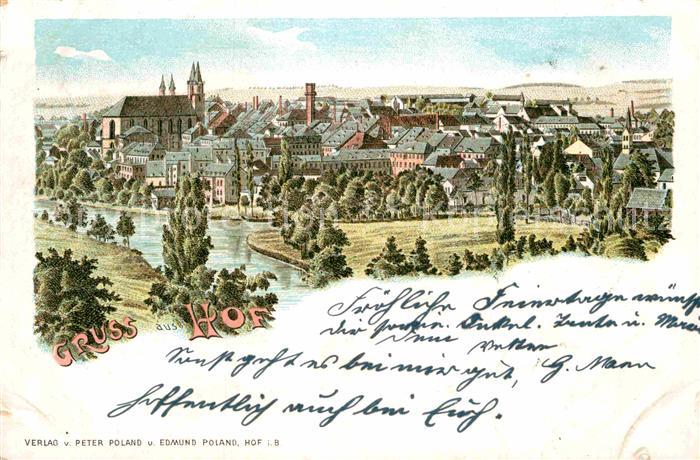 GRUSS aus HOF
Fröhliche Feiertage wünscht
der Onkel. Tante u.
dem Vetter
Sonst geht es bei mir gut,
hoffentlich auch bei Euch.
VERLAG v. PETER POLAND u. EDMUND POLAND, HOF i. B